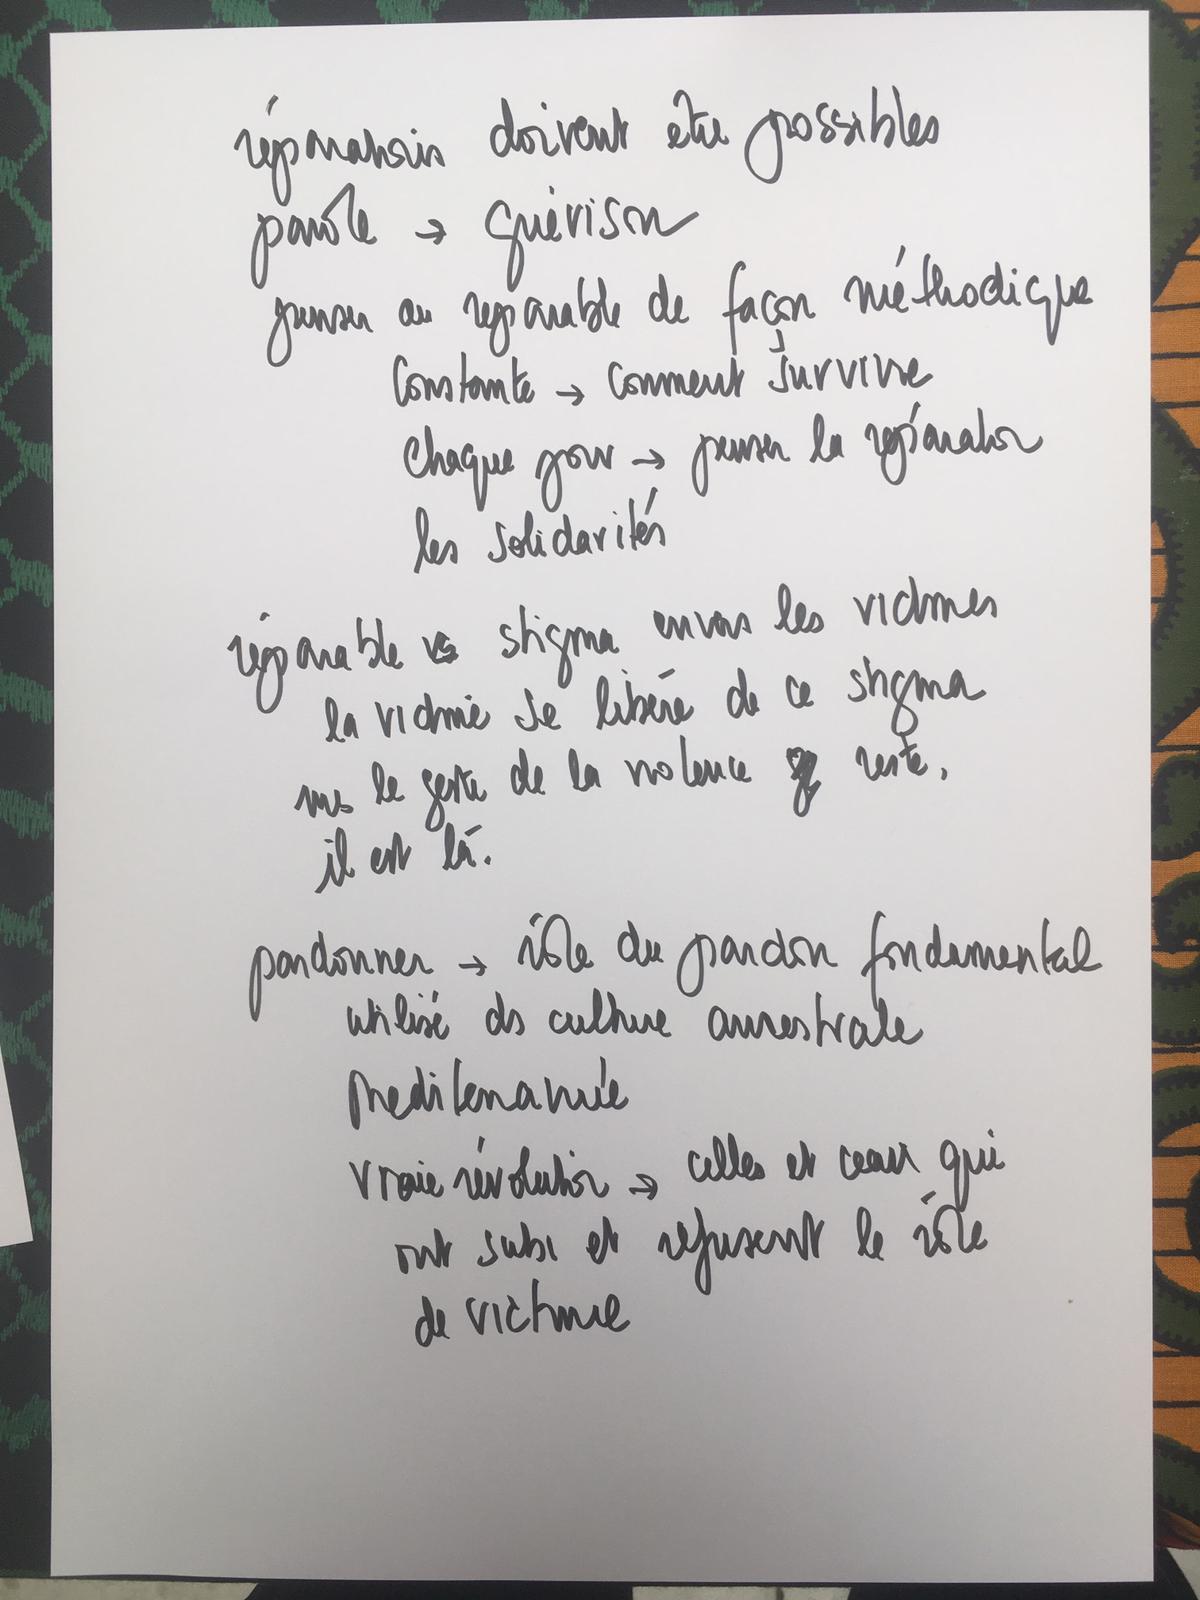 réparations doivent être possibles
parole → guérison
penser au réparable de façon méthodique
constante → comment survivre
chaque jour → penser la réparation
les solidarités
réparable vs stigma envers les victimes
la victime se libère de ce stigma
ms le geste de la violence reste,
il est là.
pardonner → rôle du pardon fondamental
utilisé ds culture ancestrale
Méditerranée
vraie révolution → celles et ceux qui
ont subi et refusent le rôle
de victime